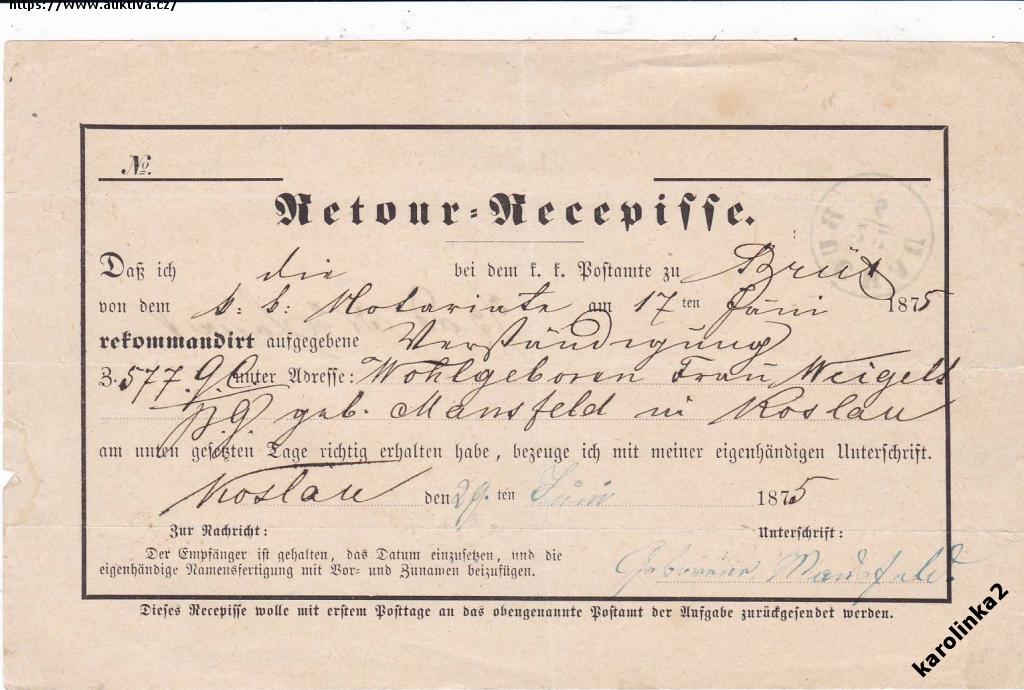 https://www.auktiva.cz/
No.
Retour-Recepisse.
Daß ich die bei dem k. k. Postamte zu Brüx
von dem k: k: Notariate am 17 ten Juni 1875
rekommandirt aufgegebene Verständigung
Z. 577. unter Adresse: Wohlgeboren Frau Weigelt
geb. Mansfeld in Koslau
am unten gesetzten Tage richtig erhalten habe, bezeuge ich mit meiner eigenhändigen Unterschrift.
Koslau den 29. ten Juni 1875
Zur Nachricht: Unterschrift:
Der Empfänger ist gehalten, das Datum einzusetzen, und die
eigenhändige Namensfertigung mit Vor- und Zunamen beizufügen.
Geborene Mansfeld.
Dieses Recepisse wolle mit erstem Posttage an das obengenannte Postamt der Aufgabe zurückgesendet werden.
karolinka2